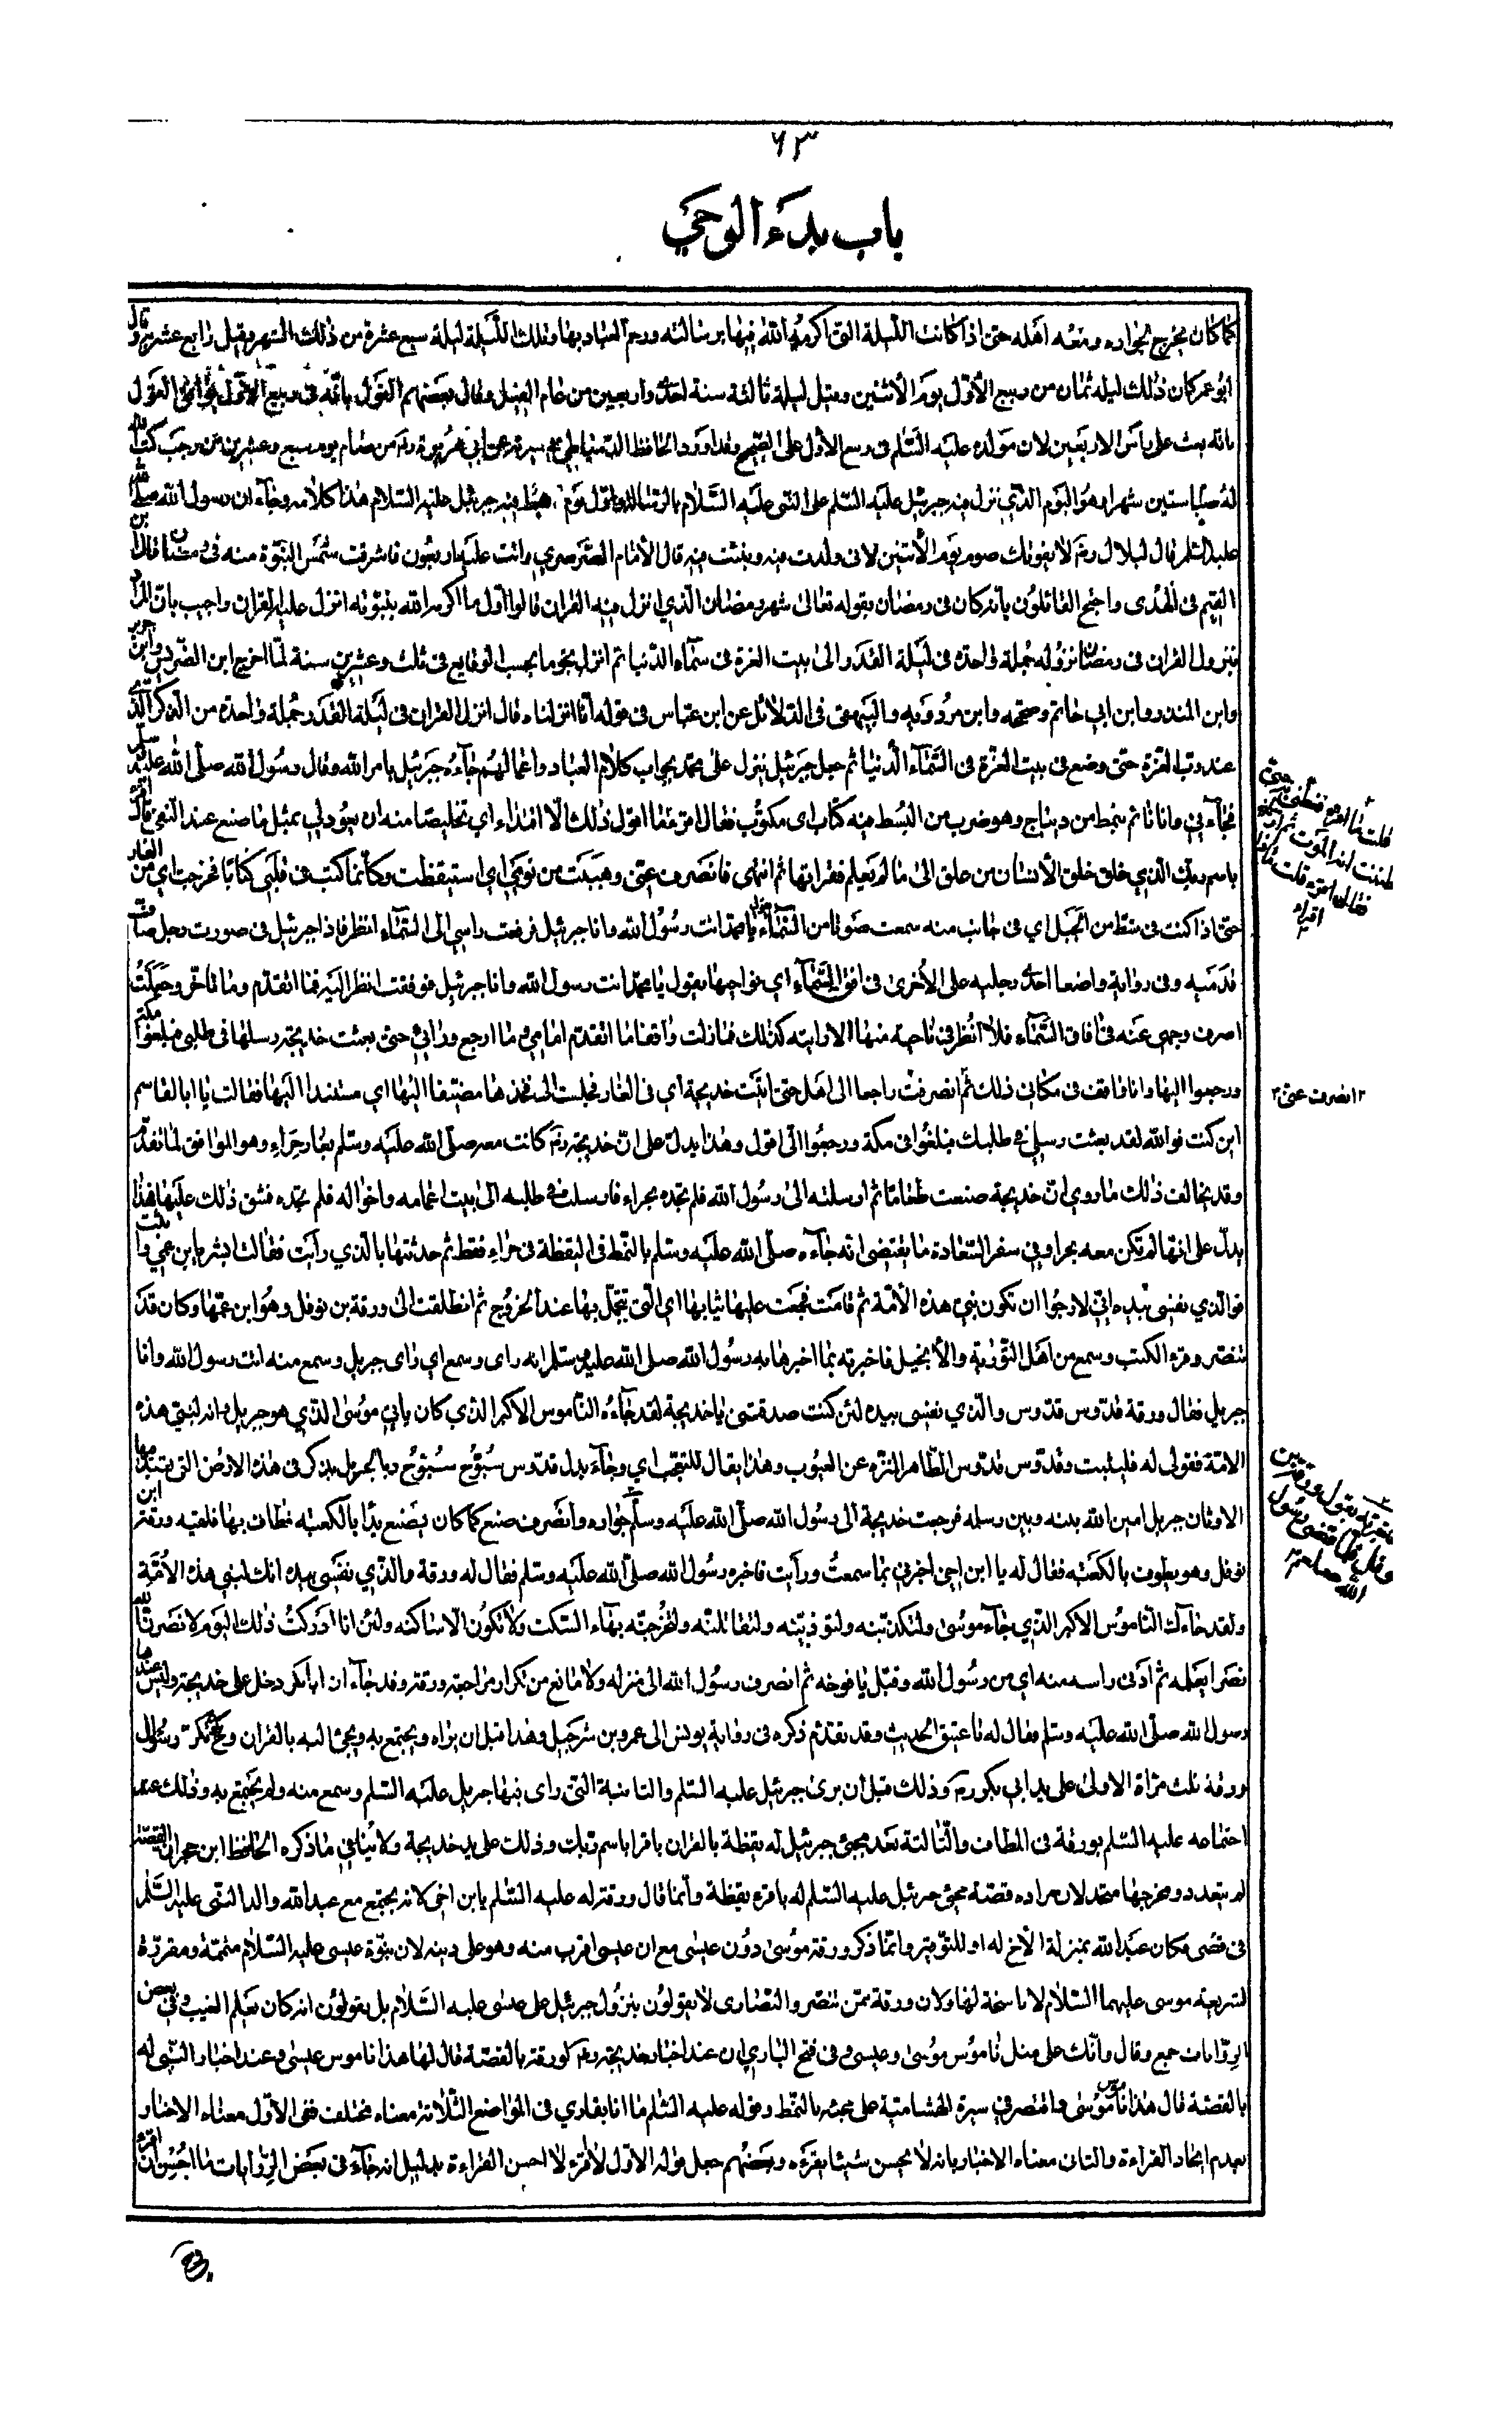 ٦٣
باب بدء الوحي
كما كان يخرج لجواره ومعه اهله حتى اذا كانت الليلة التي اكرمه الله فيها برسالته ورحم العباد بها وتلك الليلة ليلة سبع عشرة من ذلك الشهر وقيل رابع عشريه وقال
ابو عمر كان ذلك ليلة ثمان من ربيع الأول يوم الأثنين وقيل ليلة ثالثة سنة احدى واربعين من عام الفيل وقال بعضهم القول بانه في ربيع الأول يوافق القول
بانه بعث على راس الاربعين لان مولده عليه السلم في ربيع الأول على الصحيح وقد اورد الحافظ الدمياطي في سيرته عن ابي هريرة رضـ من صام يوم سبع وعشرين من رجب كتب الله
له صيام ستين شهرا وهو اليوم الذي نزل فيه جبرئيل عليه السلم على النبى عليه السلام بالرسالة واول يوم هبط فيه جبرئيل عليه السلام هذا كلامه وجاء ان رسول الله صلى الله
عليه السلم قال لبلال رضـ لا يفوتك صوم يوم الأثنين لانى ولدت فيه وبعثت فيه قال الأمام الصرصري واتت عليه اربعون فاشرقت شمس النبوة منه في رمضان قال ابن
القيم فى الهدى واحتج القائلون بانه كان فى رمضان بقوله تعالى شهر رمضان الذي انزل فيه القران قالوا اول ما اكرم الله بنبوته انزل عليه القران واجيب بان المراد
بنزول القران فى رمضان نزوله جملة واحدة فى ليلة القدر الى بيت العزة فى سماء الدنيا ثم انزل نجوما بحسب الوقايع فى ثلث وعشرين سنة لما اخرج ابن الضريس وابن جرير
وابن المنذر وابن ابي حاتم وصححه وابن مردويه والبيهقى فى الدلائل عن ابن عباس فى قوله انا انزلناه قال انزل القران فى ليلة القدر جملة واحدة من الذكر الذي
عند رب العزة حتى وضع فى بيت العزة فى السماء الدنيا ثم جعل جبرئيل ينزل على محمد بجواب كلام العباد واعمالهم جاءه جبرئيل بامر الله وقال رسول الله صلى الله عليه وسلم
فجاءني وانا نائم بنمط من ديباج وهو ضرب من البسط فيه كتاب اى مكتوب فقال اقرء فما اقول ذلك الا افتداء اي تخليصا منه ان يعود لي بمثل ما صنع عند النبي قال اقرء
باسم ربك الذي خلق خلق الأنسان من علق الى ما لم يعلم فقراتها ثم انتهى فانصرف عني وهببت من نومي اي استيقظت وكانما كتب فى قلبي كتابا فخرجت اي من الغار
حتى اذا كنت فى شط من الجبل اي فى جانب منه سمعت صوتا من السماء يقول يا محمد انت رسول الله وانا جبرئيل فرفعت راسي الى السماء انظر فاذا جبرئيل فى صورت رجل صاف
قدميه وفى رواية واضعا احدى رجليه على الأخرى فى افق السماء اي نواحيها يقول يا محمد انت رسول الله وانا جبرئيل فوقفت انظر اليه فما اتقدم وما اتاخر وجعلت
اصرف وجهى عنه فى افاق السماء فلا انظر فى ناحية منها الا رايته كذلك فما زلت واقفا ما اتقدم امامي وما ارجع ورائي حتى بعثت خديجة رسلها فى طلبي فبلغوا مكة
ورجعوا اليها وانا واقف فى مكاني ذلك ثم انصرفت راجعا الى اهلى حتى اتيت خديجة اي فى الغار فجلست الى فخذها مضيفا اليها اي مستندا اليها فقالت يا ابا القاسم
اين كنت فوالله لقد بعثت رسلي فى طلبك فبلغوا مكة ورجعوا الي اقول وهذا يدل على ان خديجة رضـ كانت معه صلى الله عليه وسلم بغار حراء وهو الموافق لما تقدم
وقد يخالف ذلك ما روي ان خديجة صنعت طعاما ثم ارسلته الى رسول الله فلم تجده بحراء فارسلت فى طلبه الى بيت اعمامه واخواله فلم تجده فشق ذلك عليها هذا
يدل على انها لم تكن معه بحراء وفى سفر السعادة ما يقتضى انه جاءه صلى الله عليه وسلم بالنمط فى اليقظة فى حراء فقط ثم حدثتها بالذي رأيت فقالت ابشر يا ابن عمي واثبت
فوالذي نفسى بيده اني لارجوا ان تكون نبي هذه الأمة ثم قامت فجمعت عليها ثيابها اي التى تتجمل بها عند الخروج ثم انطلقت الى ورقة بن نوفل وهو ابن عمها وكان قد
تنصر وقرء الكتب وسمع من اهل التورية والأنجيل فاخبرته بما اخبرها به رسول الله صلى الله عليه وسلم انه راى وسمع اي راى جبريل وسمع منه انت رسول الله وانا
جبريل فقال ورقة قدوس قدوس والذي نفسى بيده لئن كنت صدقتنى يا خديجة لقد جاءه الناموس الاكبر الذي كان ياتي موسى الذي هو جبريل وانه لنبي هذه
الامة فقولى له فليثبت وقدوس قدوس الطاهر المنزه عن العيوب وهذا يقال للتعجب اي وجاء بدل قدوس سبوح سبوح وما لجبريل يذكر فى هذه الارض التى يعبد فيها
الاوثان جبريل امين الله بينه وبين رسله فرجعت خديجة الى رسول الله صلى الله عليه وسلم جواره وانصرف صنع كما كان يصنع بدا بالكعبة فطاف بها فلقيه ورقة ابن
نوفل وهو يطوف بالكعبة فقال له يا ابن اخى اخبرني بما سمعت ورأيت فاخبره رسول الله صلى الله عليه وسلم فقال له ورقة والذي نفسى بيده انك لنبي هذه الأمة
ولقد جاءك الناموس الاكبر الذي جاء موسى ولتكذبنه ولتوذينه ولتقاتلنه ولتخرجنه بهاء السكت ولا تكون الا ساكنة ولئن انا ادركت ذلك اليوم لانصرن الله
نصرا يعلمه ثم ادنى راسه منه اي من رسول الله وقبل يافوخه ثم انصرف رسول الله الى منزله ولا مانع من تكرار مراجعة ورقة وقد جاء ان ابا بكر دخل على خديجة وليس عندها
رسول الله صلى الله عليه وسلم فقال له يا عتيق الحديث وقد تقدم ذكره فى رواية يونس الى عمرو بن شرحبيل وهذا قبل ان يراه ويجتمع به ويجئ اليه بالقران وتكرر سوال
ورقة ثلث مراة الاولى على يد ابي بكر رضـ وذلك قبل ان يرى جبرئيل عليه السلم والثانية التى راى فيها جبريل عليه السلم وسمع منه ولم يجتمع به وذلك عند
اجتماعه عليه السلم بورقة فى المطاف والثالثة بعد مجئ جبرئيل له يقظة بالقران باقرا باسم ربك وذلك على يد خديجة ولا ينافي ما ذكره الحافظ ابن حجر ان القصة
لم يتعدد ومخرجها متحد لان مراده قصة مجئ جبرئيل عليه السلم له باقرء يقظة وانما قال ورقة له عليه السلم يا ابن اخى لانه يجتمع مع عبد الله والد النبى عليه السلم
فى قصى فكان عبد الله بمنزلة الأخ له او للتوقير وانما ذكر ورقة موسى دون عيسى مع ان عيسى اقرب منه وهو على دينه لان نبوة عيسى عليه السلام متممة ومقررة
لشريعة موسى عليهما السلام لا ناسخة لها ولان ورقة ممن تنصر والنصارى لا يقولون بنزول جبرئيل على عيسى عليه السلام بل يقولون انه كان يعلم الغيب وفى بعض
الروايات جمع وقال وانك على مثل ناموس موسى وعيسى وفى فتح الباري ان عند اخبار خديجة رضـ لورقة بالقصة قال لها هذا ناموس عيسى وعند اخبار النبى له
بالقصة قال هذا ناموس موسى واقتصر في سيرة الهشامية على مجئه بالنمط وقوله عليه السلم ما انا بقاري فى المواضع الثلاثة معناه مختلف ففى الأول معناه الاخبار
بعدم ايجاد القراءة والثانى معناه الاخبار بانه لا يحسن شيئا يقرءه وبعضهم جعل قوله الاول لا اقرء لا احسن القراءة بدليل انه جاء فى بعض الروايات ما احسن ان اقرء
قلت ما اقرء فغطنى به حتى
ظننت انه الموت ثم
فقال اقرء قلت ماذا
اقراء
٢ انصرف عنى ٢